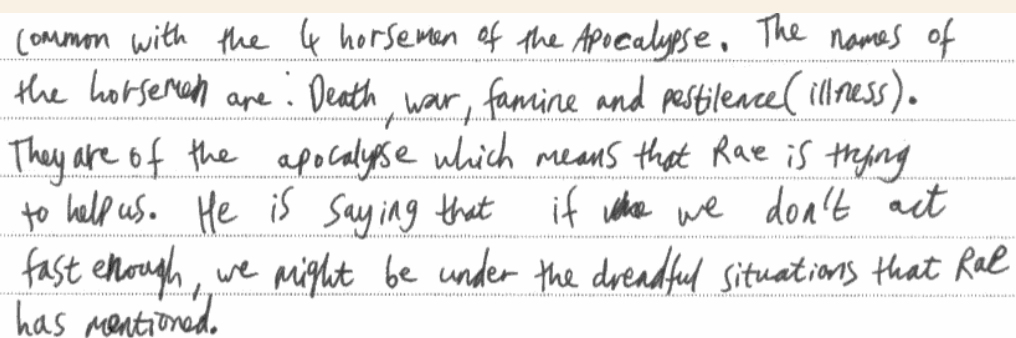 common with the 4 horsemen of the Apocalypse. The names of
the horsemen are : Death, war, famine and pestilence( illness).
They are of the apocalypse which means that Rae is trying
to help us. He is saying that if we don't act
fast enough, we might be under the dreadful situations that Rae
has mentioned.